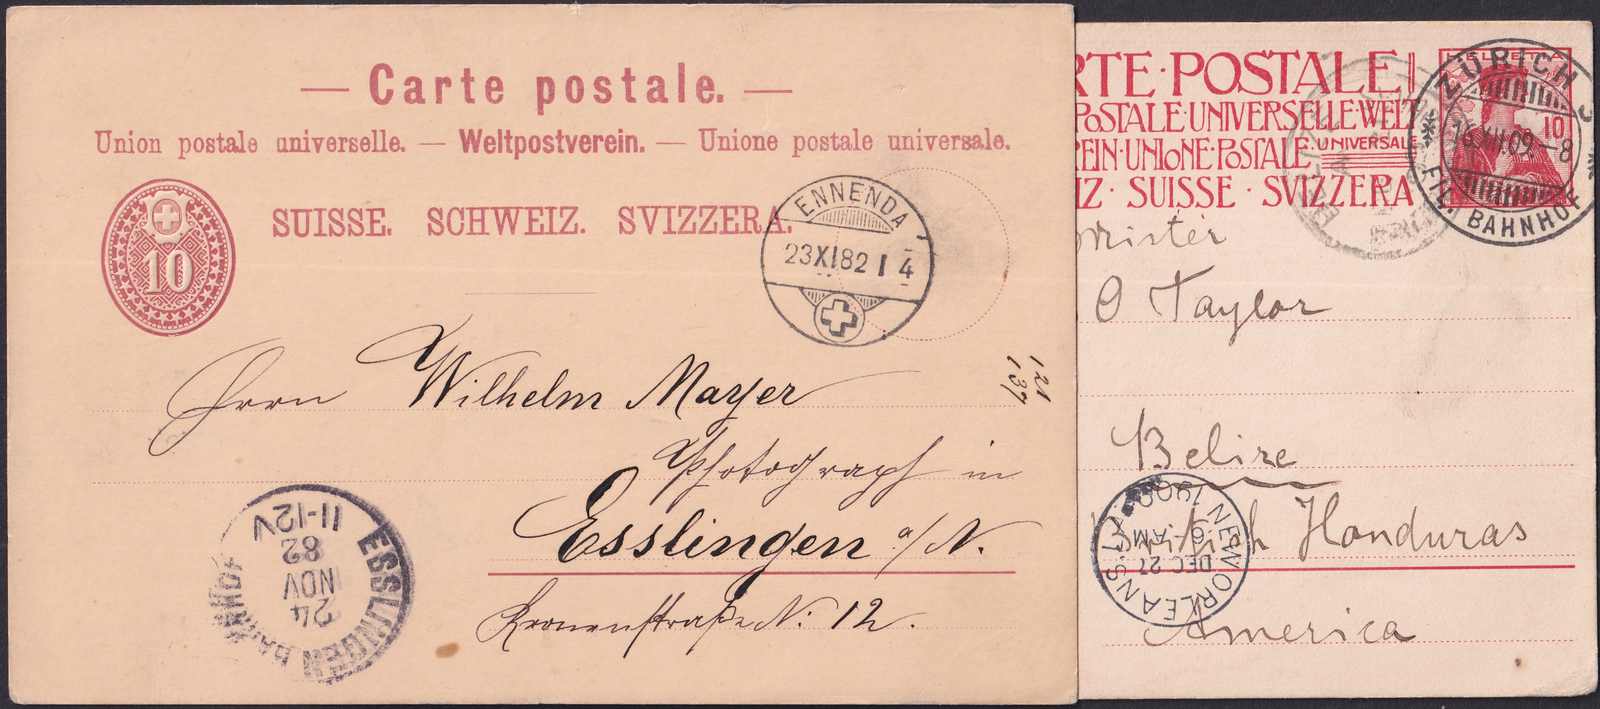 — Carte postale. —
Union postale universelle. — Weltpostverein. — Unione postale universale.
SUISSE. SCHWEIZ. SVIZZERA.
10
ENNENDA
23 XI 82 I 4
Herrn Wilhelm Mayer
Photograph in
Esslingen a/N.
Kronenstraße No. 12.
121
137
ESSLINGEN BAHNHOF
24
NOV
82
11-12V
RTE·POSTALE
POSTALE·UNIVERSELLE·WELT
EIN·UNIONE·POSTALE UNIVERSALE
IZ · SUISSE · SVIZZERA
HELVETIA
10
ZÜRICH 3
16.XII.09.-8
FIL. BAHNHOF
O Taylor
Belize
Honduras
America
NEW ORLEANS, LA.
DEC 27
6-AM
1909